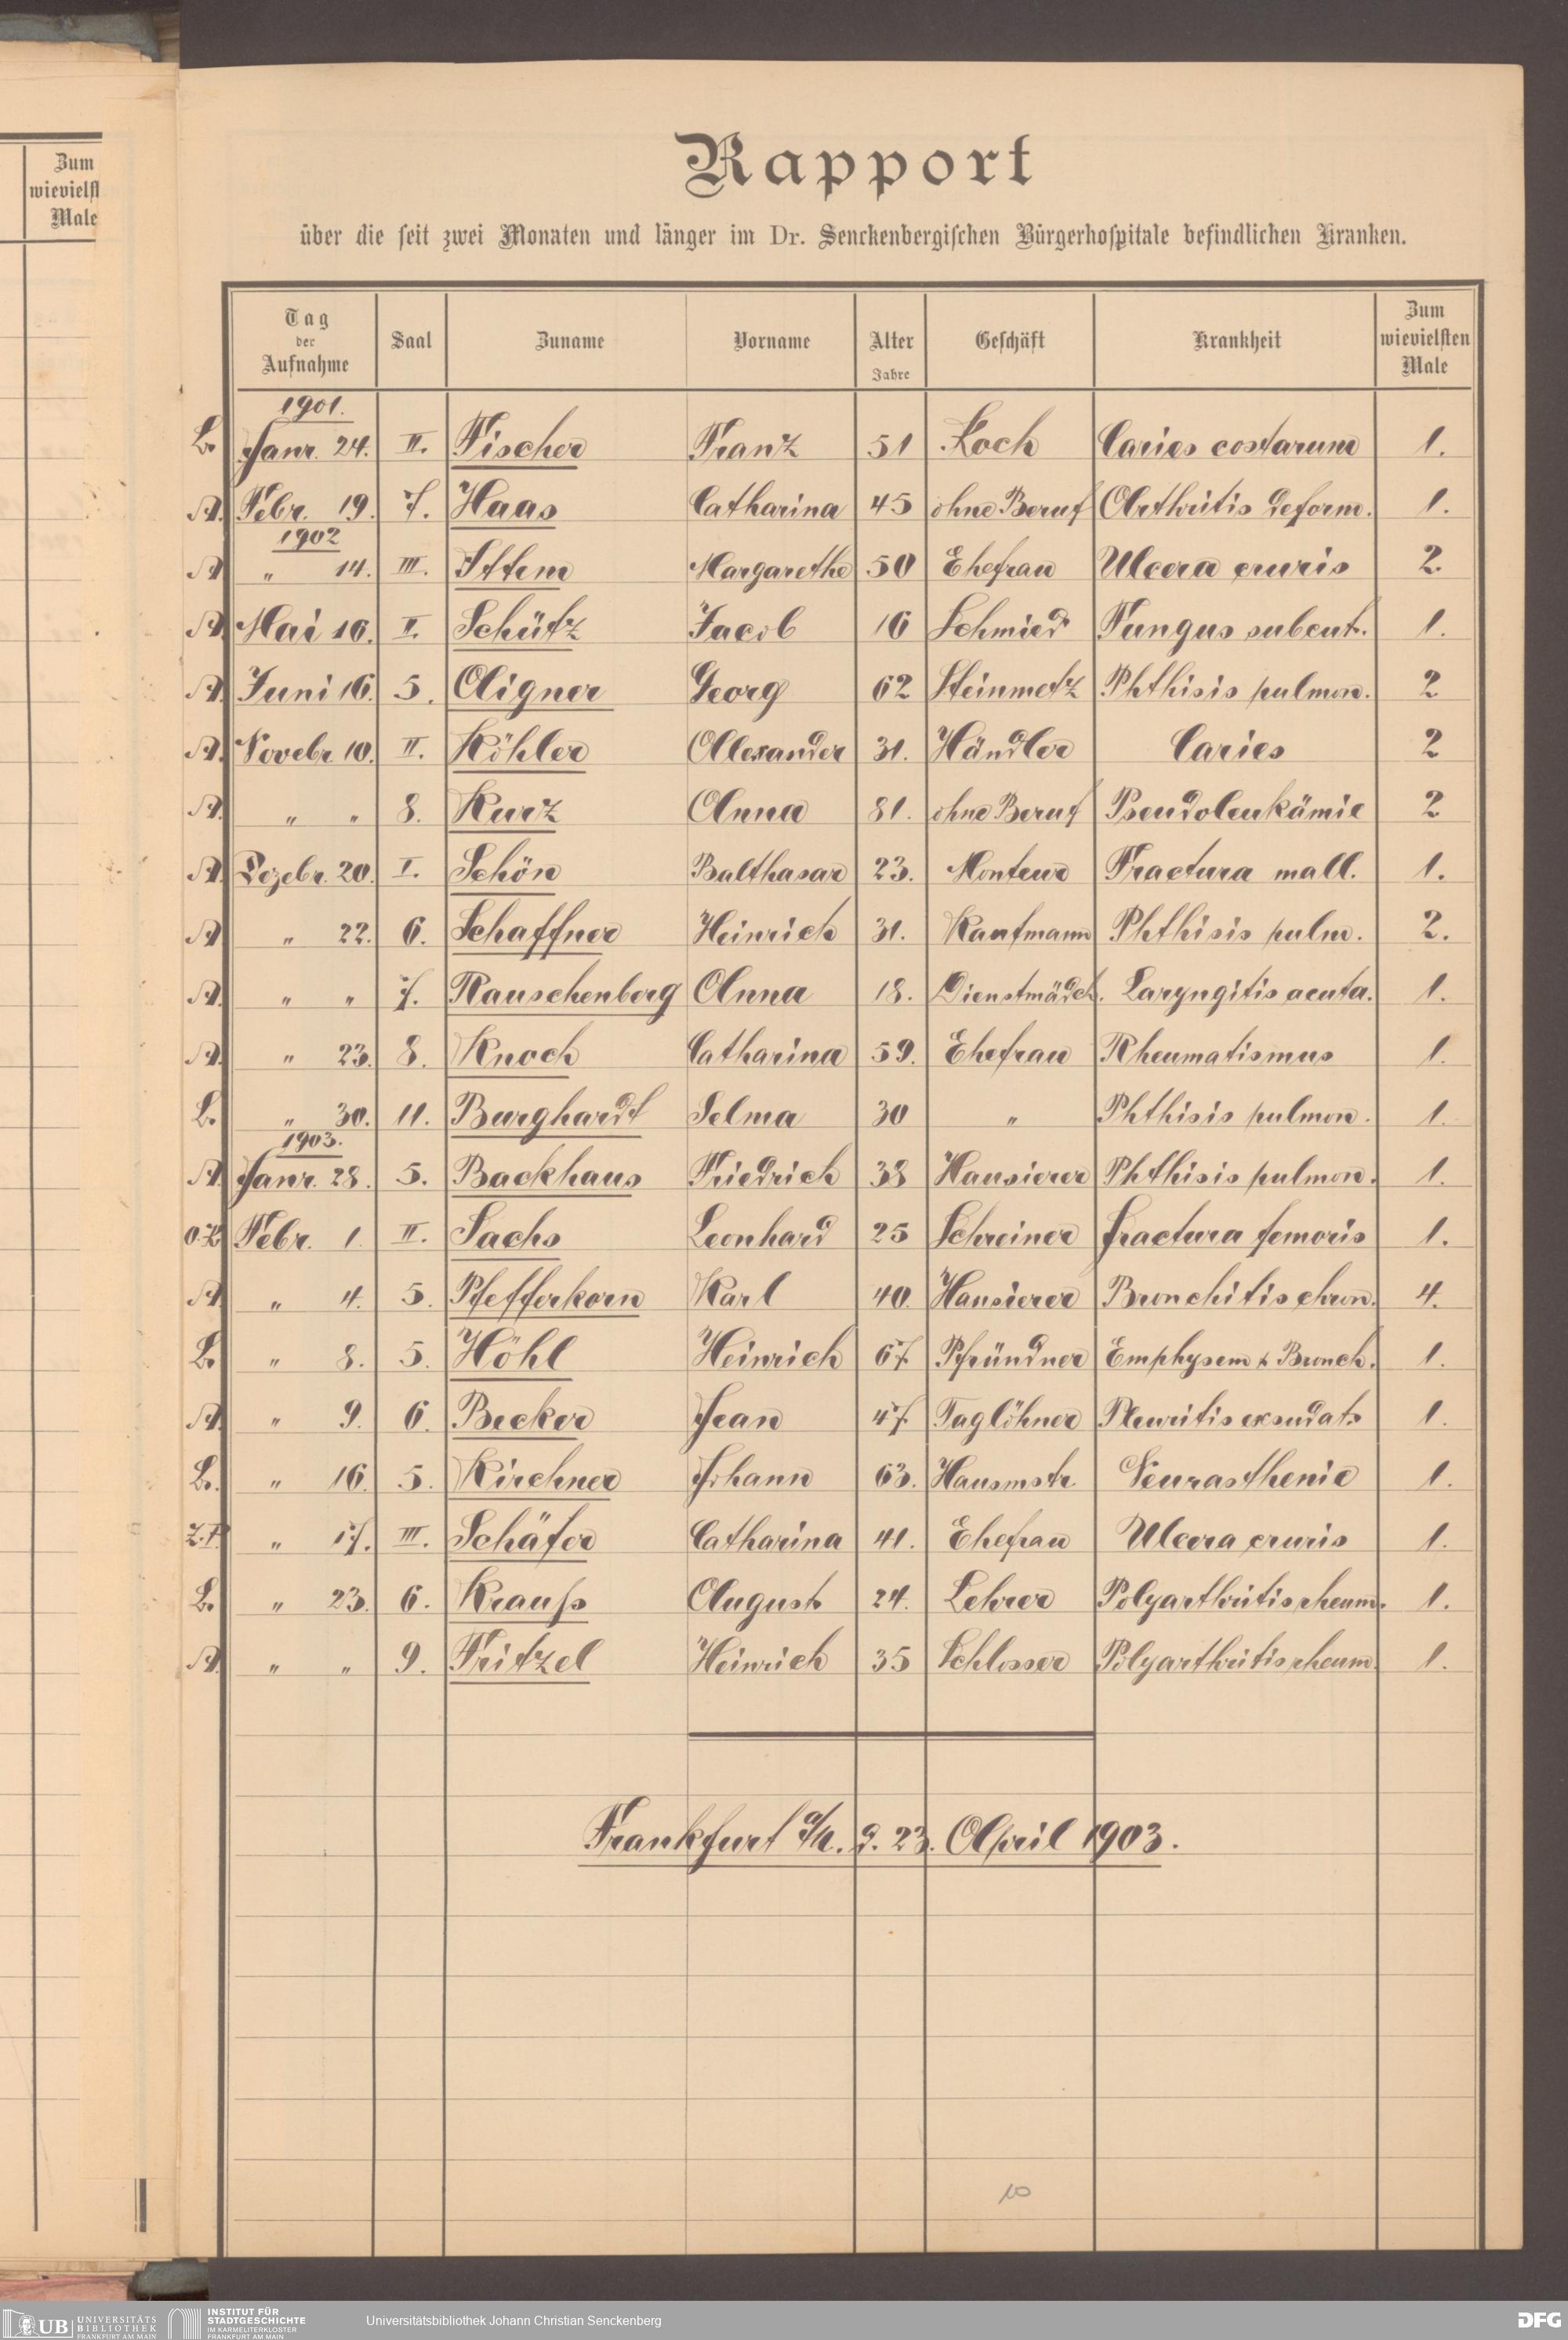 Zum
wieviels
Male
Rapport
über die seit zwei Monaten und länger im Dr. Senckenbergischen Bürgerhospitale befindlichen Kranken.
Tag der Aufnahme Saal Zuname Vorname Alter Jahre Geschäft Krankheit Zum wievielsten Male
1901.
B. Janr. 24. II. Fischer Franz 51 Koch Caries costarum 1.
A. Febr. 19. 7. Haas Catharina 45 ohne Beruf Arthritis deform. 1.
1902
A. " 14. III. Ittem Margarethe 50 Ehefrau Ulcera cruris 2.
A. Mai 16. I. Schütz Jacob 16 Schmied Fungus subcut. 1.
A. Juni 16. 5. Aigner Georg 62 Steinmetz Phthisis pulmon. 2
A. Novebr. 10. II. Köhler Alexander 31. Händler Caries 2
A. " " 8. Kurz Anna 81. ohne Beruf Pseudoleukämie 2
A. Dezebr. 20. I. Schön Balthasar 23. Monteur Fractura mall. 1.
A. " 22. 6. Schaffner Heinrich 31. Kaufmann Phthisis pulm. 2.
A. " " 7. Rauschenberg Anna 18. Dienstmädch. Laryngitis acuta. 1.
A. " 23. 8. Knoch Catharina 59. Ehefrau Rheumatismus 1.
B. " 30. 11. Burghardt Selma 30 " Phthisis pulmon. 1.
1903.
A. Janr. 28. 5. Backhaus Friedrich 38 Hausierer Phthisis pulmon. 1.
Febr. 1. II. Sachs Leonhard 25 Schreiner Fractura femoris 1.
A. " 4. 5. Pfefferkorn Karl 40. Hausierer Bronchitis chron. 4.
B. " 8. 5. Höhl Heinrich 67 Pfründner Emphysem & Bronch. 1.
A. " 9. 6. Becker Jean 47 Taglöhner Pleuritis exsudat. 1.
B. " 16. 5. Kirchner Johann 63. Hausmstr. Neurasthenie 1.
" 17. III. Schäfer Catharina 41. Ehefrau Ulcera cruris 1.
B. " 23. 6. Krauſs August 24. Lehrer Polyarthritis rheum. 1.
A. " " 9. Fritzel Heinrich 35 Schlosser Polyarthritis rheum. 1.
Frankfurt a/M. d. 23. April 1903.
10
UB UNIVERSITÄTS BIBLIOTHEK FRANKFURT AM MAIN
INSTITUT FÜR STADTGESCHICHTE IM KARMELITERKLOSTER FRANKFURT AM MAIN
Universitätsbibliothek Johann Christian Senckenberg
DFG